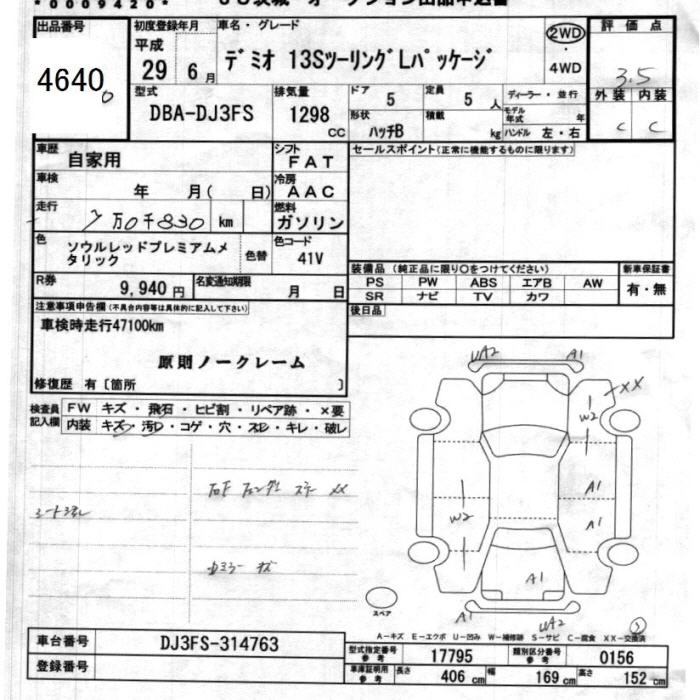 *0009420*
出品番号
4640
初度登録年月
平成
29 6 月
車名・グレード
デミオ 13SツーリングLパッケージ
2WD
・
4WD
評価点
3.5
外装 内装
C C
型式
DBA-DJ3FS
排気量
1298
CC
ドア
5
定員
5 人
形状
ハッチB
積載
kg
ディーラー・並行
モデル
年式 年
ハンドル 左・右
車歴
自家用
シフト
FAT
セールスポイント(正常に機能するものに限ります)
車検
年 月( 日)
冷房
AAC
走行
7万0千830 km
燃料
ガソリン
色
ソウルレッドプレミアムメ
タリック
色替
色コード
41V
R券
9,940 円
名変通知期限
月 日
装備品(純正品に限り○をつけてください)
PS PW ABS エアB AW
SR ナビ TV カワ
新車保証書
有・無
後日品
注意事項申告欄(不具合内容等は具体的に記入して下さい)
車検時走行47100km
原則ノークレーム
修復歴 有〔箇所 〕
検査員
記入欄
FW キズ・飛石・ヒビ割・リペア跡・×要
内装 キズ・汚レ・コゲ・穴・スレ・キレ・破レ
UA2 A1
XX
W2
A1
A1
W2
A1
A1
UA2
スペア
A-キズ E-エクボ U-凹み W-補修跡 S-サビ C-腐食 XX-交換済
車台番号
DJ3FS-314763
登録番号
型式指定番号
参考
17795
類別区分番号
参考
0156
車庫証明用
参考
長さ
406 cm
幅
169 cm
高さ
152 cm